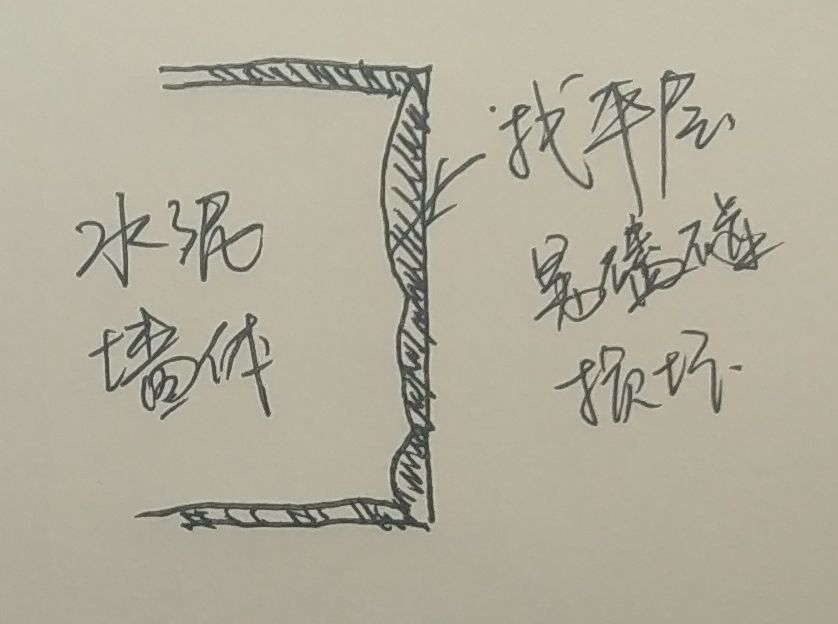 水泥
墙体
找平层
易磕碰
损坏